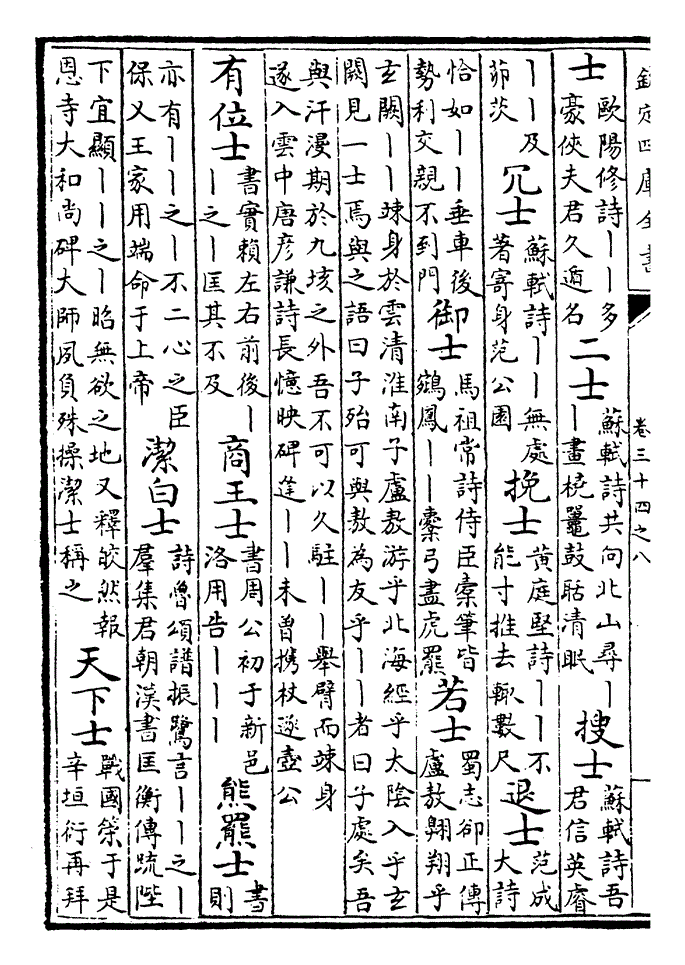 欽定四庫全書
卷三十四之八
士
歐陽修詩丨丨多
豪俠夫君久遁名
二士
蘇軾詩共向北山尋丨
丨畫橈鼉鼓聒清眠
搜士
蘇軾詩吾
君信英睿
丨丨及
茆茨
冗士
蘇軾詩丨丨無處
著寄身范公園
挽士
黃庭堅詩丨丨不
能寸推去輙數尺
退士
范成
大詩
恰如丨丨垂車後
勢利交親不到門
御士
馬祖常詩侍臣槖筆皆
鵷鳳丨丨櫜弓盡虎羆
若士
蜀志郤正傳
盧敖翺翔乎
玄闕丨丨竦身於雲清淮南子盧敖游乎北海經乎太陰入乎玄
闕見一士焉與之語曰子殆可與敖為友乎丨丨者曰子處矣吾
與汗漫期於九垓之外吾不可以久駐丨丨舉臂而竦身
遂入雲中唐彥謙詩長憶映碑逢丨丨未曾携杖逐壺公
有位士
書實賴左右前後丨
丨之丨匡其不及
商王士
書周公初于新邑
洛用告丨丨丨
熊羆士
書
則
亦有丨丨之丨不二心之臣
保乂王家用端命于上帝
潔白士
詩魯頌譜振鷺言丨丨之丨
羣集君朝漢書匡衡傳疏陛
下宜顯丨丨之丨昭無欲之地又釋皎然報
恩寺大和尚碑大師夙負殊操潔士稱之
天下士
戰國策于是
辛垣衍再拜